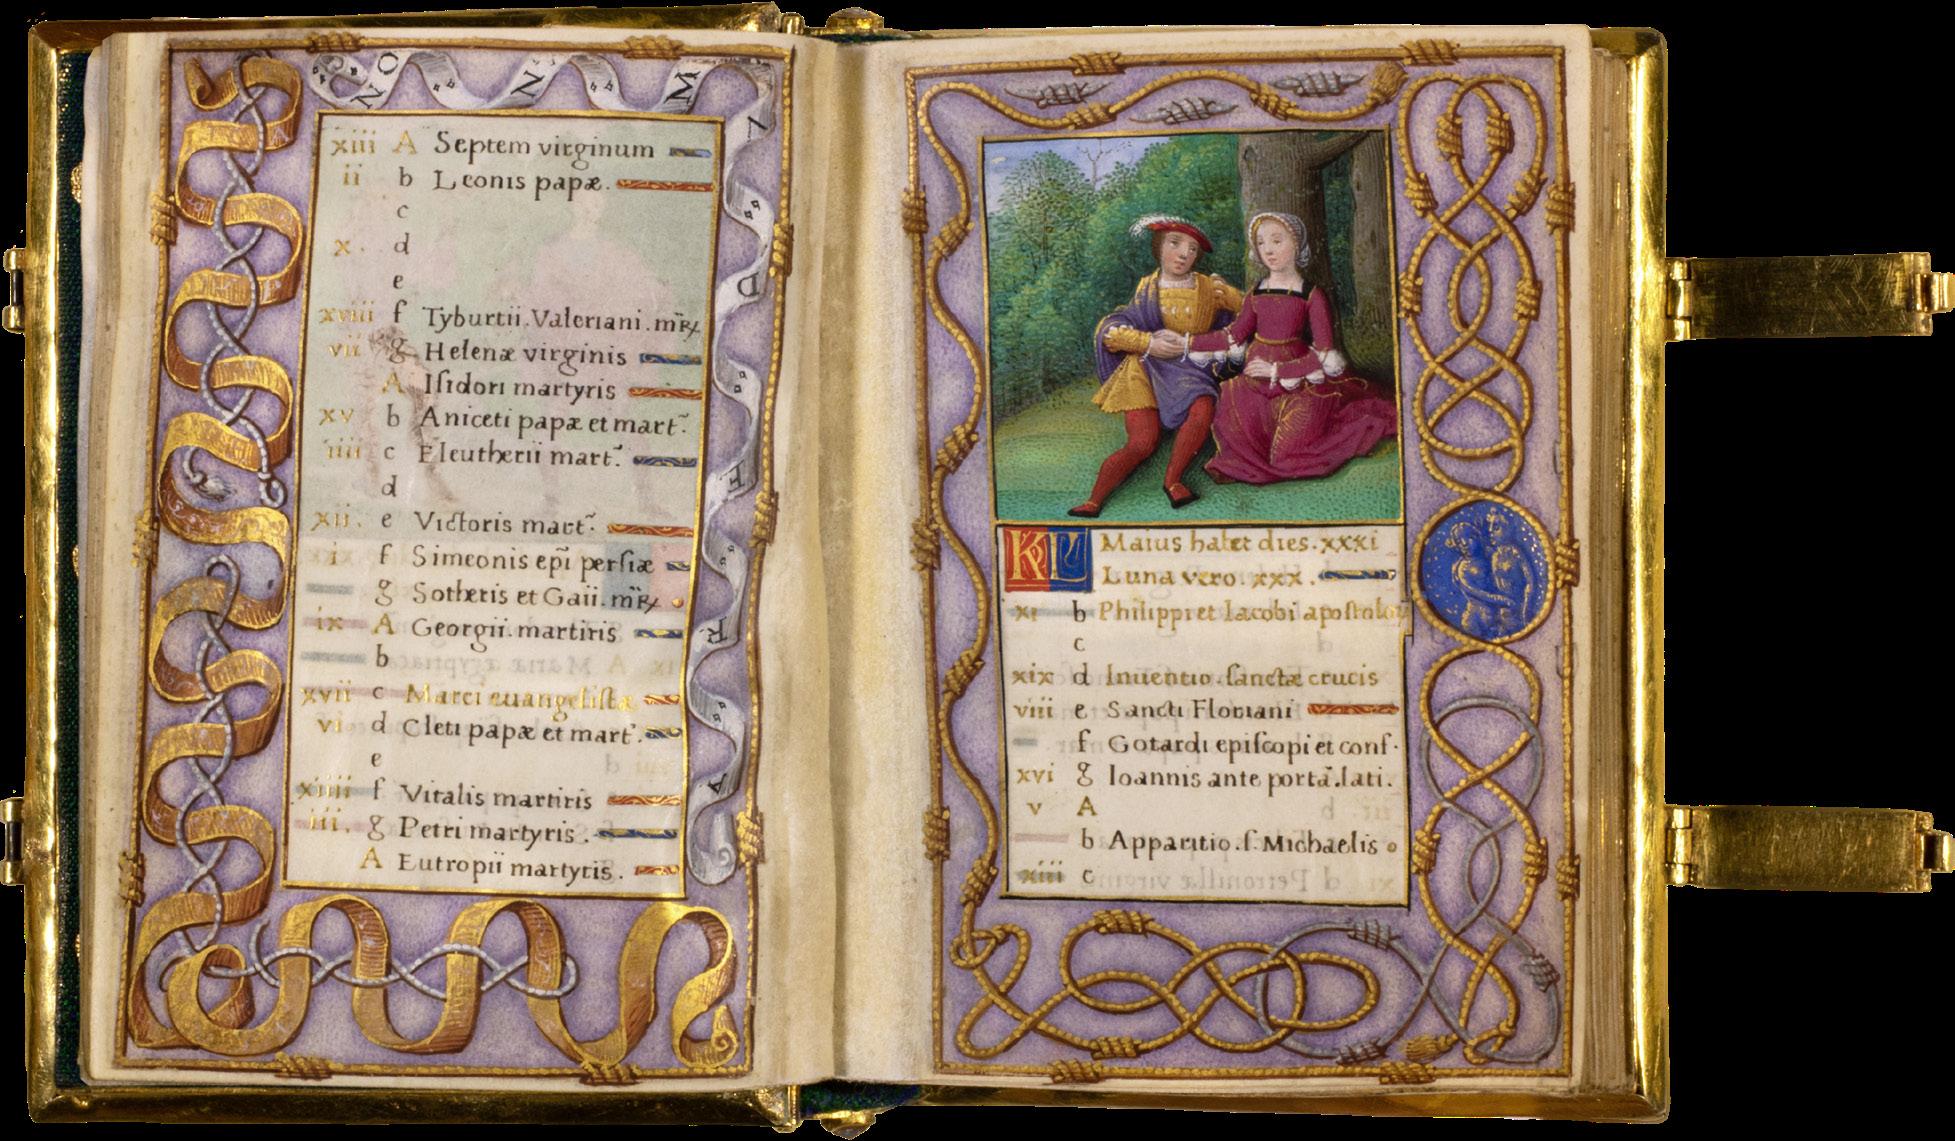 NO N M
xiii A Septem virginum
ii b Leonis papæ.
c
x. d
e
xviii f Tyburtii. Valeriani. mr̃
vii g Helenæ virginis
A Isidori martyris
xv b Aniceti papæ et mart̃.
iiii c Eleutherii mart̃.
d
xii. e Victoris mart̃.
i f Simeonis ep̃i persiæ
g Sotheris et Gaii. mr̃
ix A Georgii. martiris
b
xvii c Marci euangelistæ
vi d Cleti papæ et mart̃.
e
xiiii f Vitalis martiris
iii. g Petri martyris.
A Eutropii martyris.
KL Maius habet dies. xxxi
Luna vero xxx.
xi b Philippi et Iacobi apostolou
c
xix d Inuentio sanctæ crucis
viii e Sancti Floriani
f Gotardi episcopi et conf.
xvi g Ioannis ante portã. lati.
v A
b Apparitio. s. Michaelis
xiii c